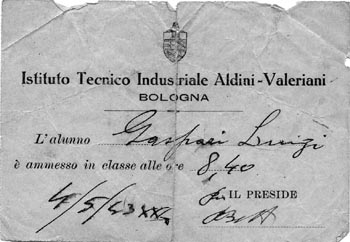 Istituto Tecnico Industriale Aldini-Valeriani
BOLOGNA
L'alunno Gaspari Luigi
è ammesso in classe alle ore 8,40
4/5/43 XXI
IL PRESIDE